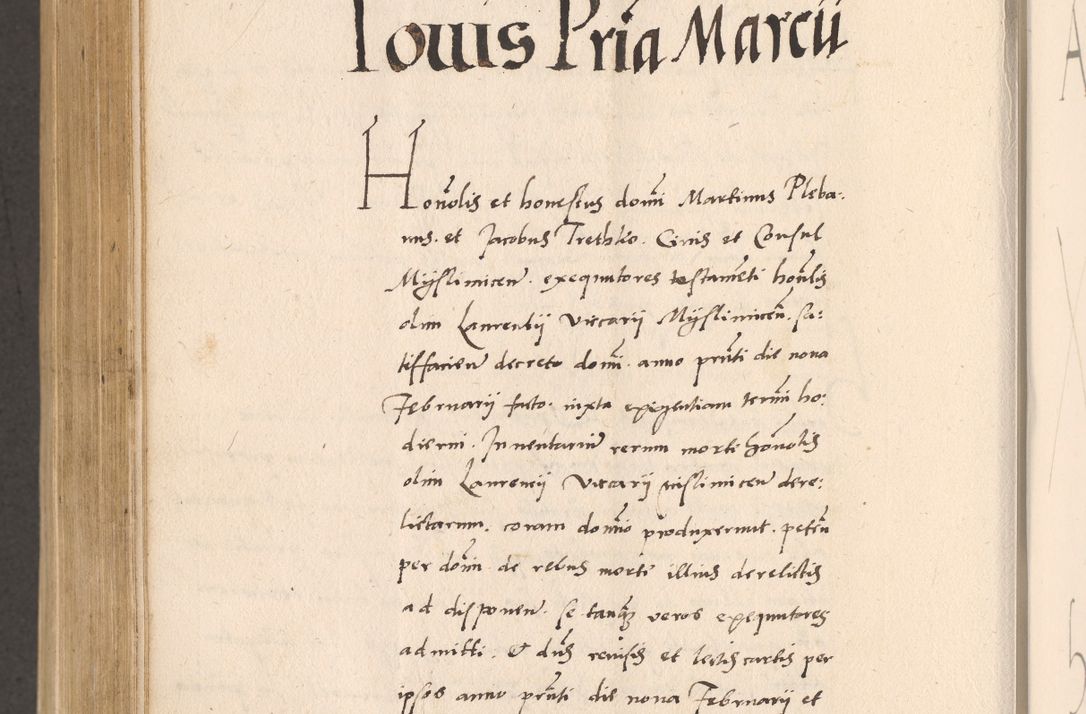 Iouis Pria Marcii
Honolis et honestus domi Martinus Pleba:
nus. et Jacobus Trethko. Civis et Consul
Myslimicen. exequutores testameti honolis
olim Laurentii Viccarii Myslimicen. sa:
tiffacien decreto domi. anno pnti die nona
Februarii facto. iuxta exigentiam termi ho:
dierni. Inventariu rerum morte honolis
olim Laurencii Viccarii mislimicen dere:
lictarum. coram domio produxerunt. peten
per domi. de rebus morte illius derelictis
ad disponen. se tanq veros exequutores
admitti. & dns revisis et lectis cartis per
ipsos anno pnti die nona Februarii et
A
5